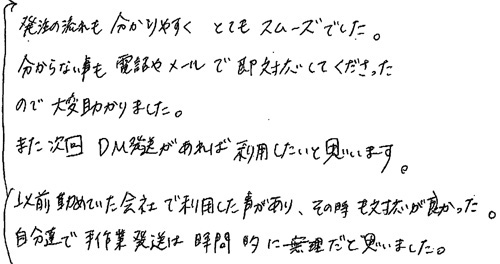 発注の流れも 分かりやすく とても スムーズでした。
分からない事も 電話や メール で 即対応してくださった
ので 大変助かりました。
また次回 DM発送があれば 利用したいと思います。
以前勤めていた会社で利用した事があり、その時も対応が良かった。
自分達で 手作業発送は 時間的に 無理だと思いました。